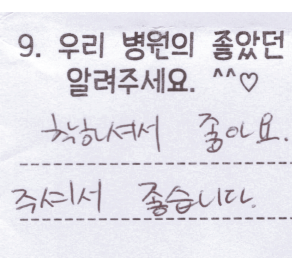 9. 우리 병원의 좋았던
알려주세요. ^^♡
착하셔서 좋아요.
주셔서 좋습니다.